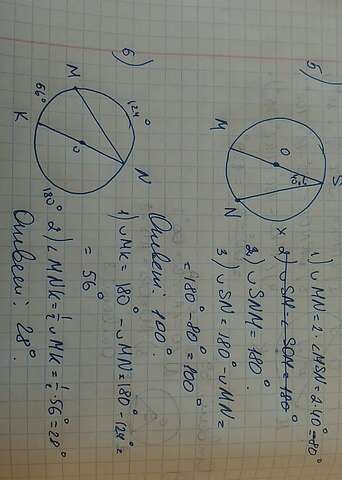 5)
S
M
O
N
x
40°
1) ∪MN = 2·∠MSN = 2·40° = 80°
2) ∪SN = ∠SON = 180°
2) ∪SNM = 180°.
3) ∪SN = 180° - ∪MN =
= 180° - 80° = 100°
Ответ: 100°.
6)
M
124°
N
O
K
66°
180°
1) ∪MK = 180° - ∪MN = 180 - 124° =
= 56°
2) ∠MNK = 1/2 ∪MK = 1/2 · 56° = 28°
Ответ: 28°.